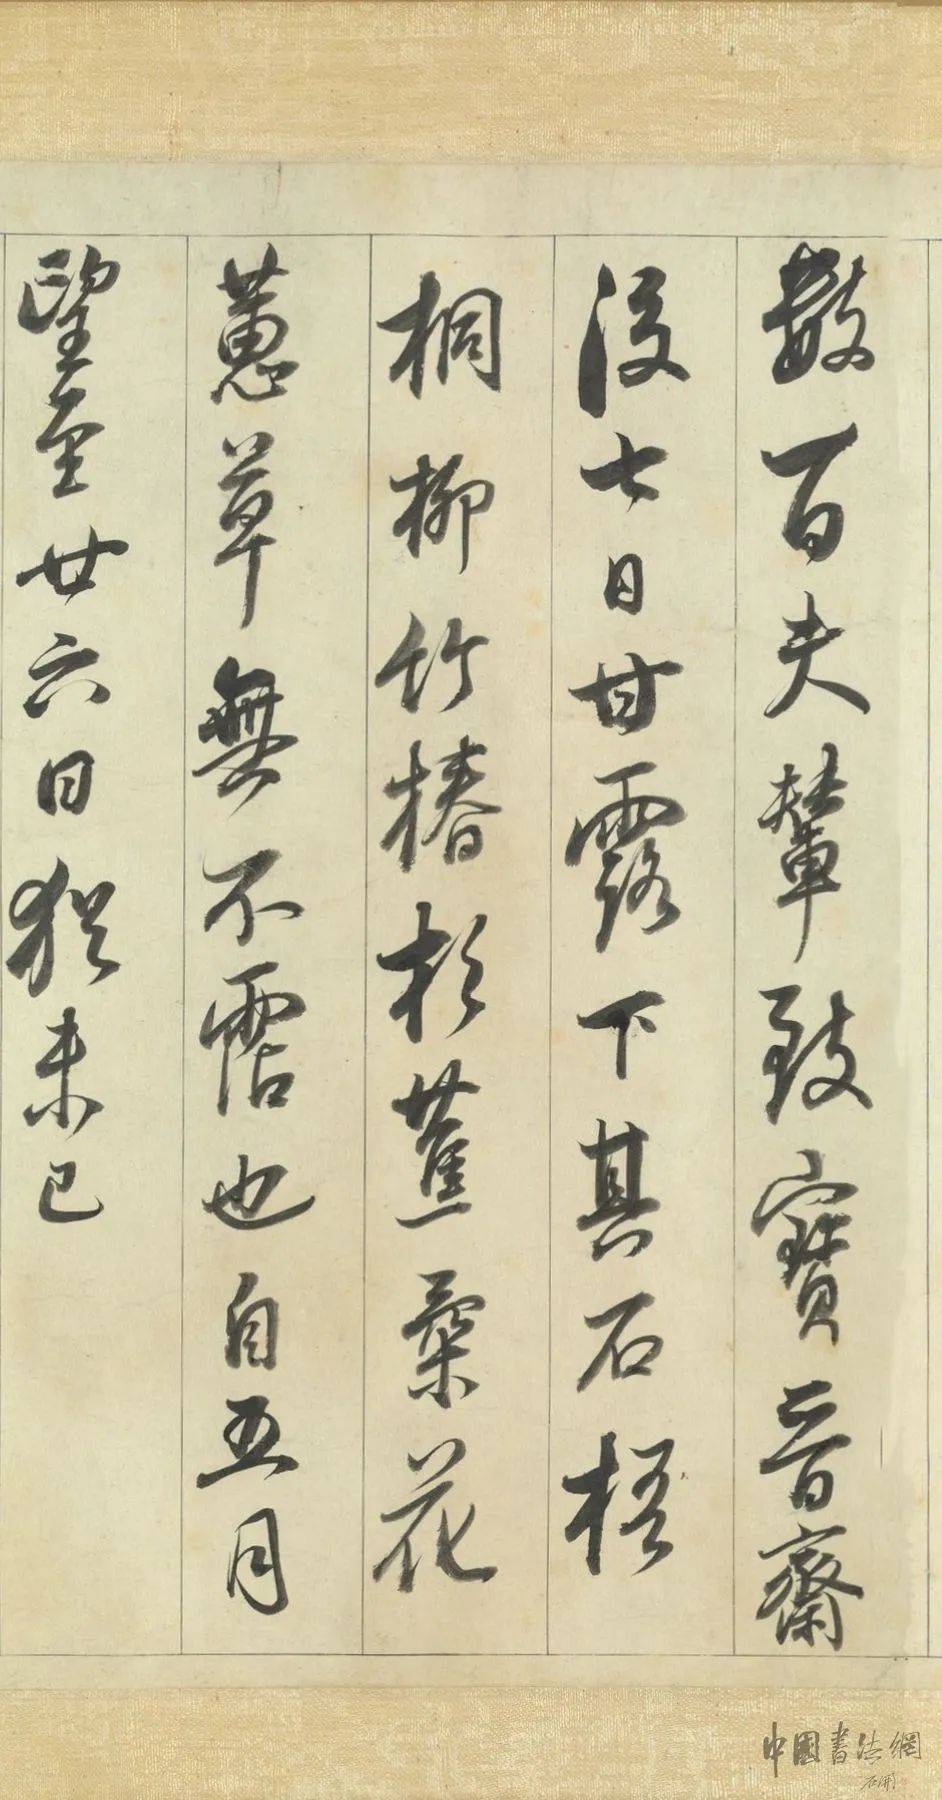 數百夫輦致寶晉齋
後七日甘露下其石梧
桐柳竹椿杉蕉葉花
蕙草無不霑也自五月
望至廿六日猶未已
中國書法網
石開